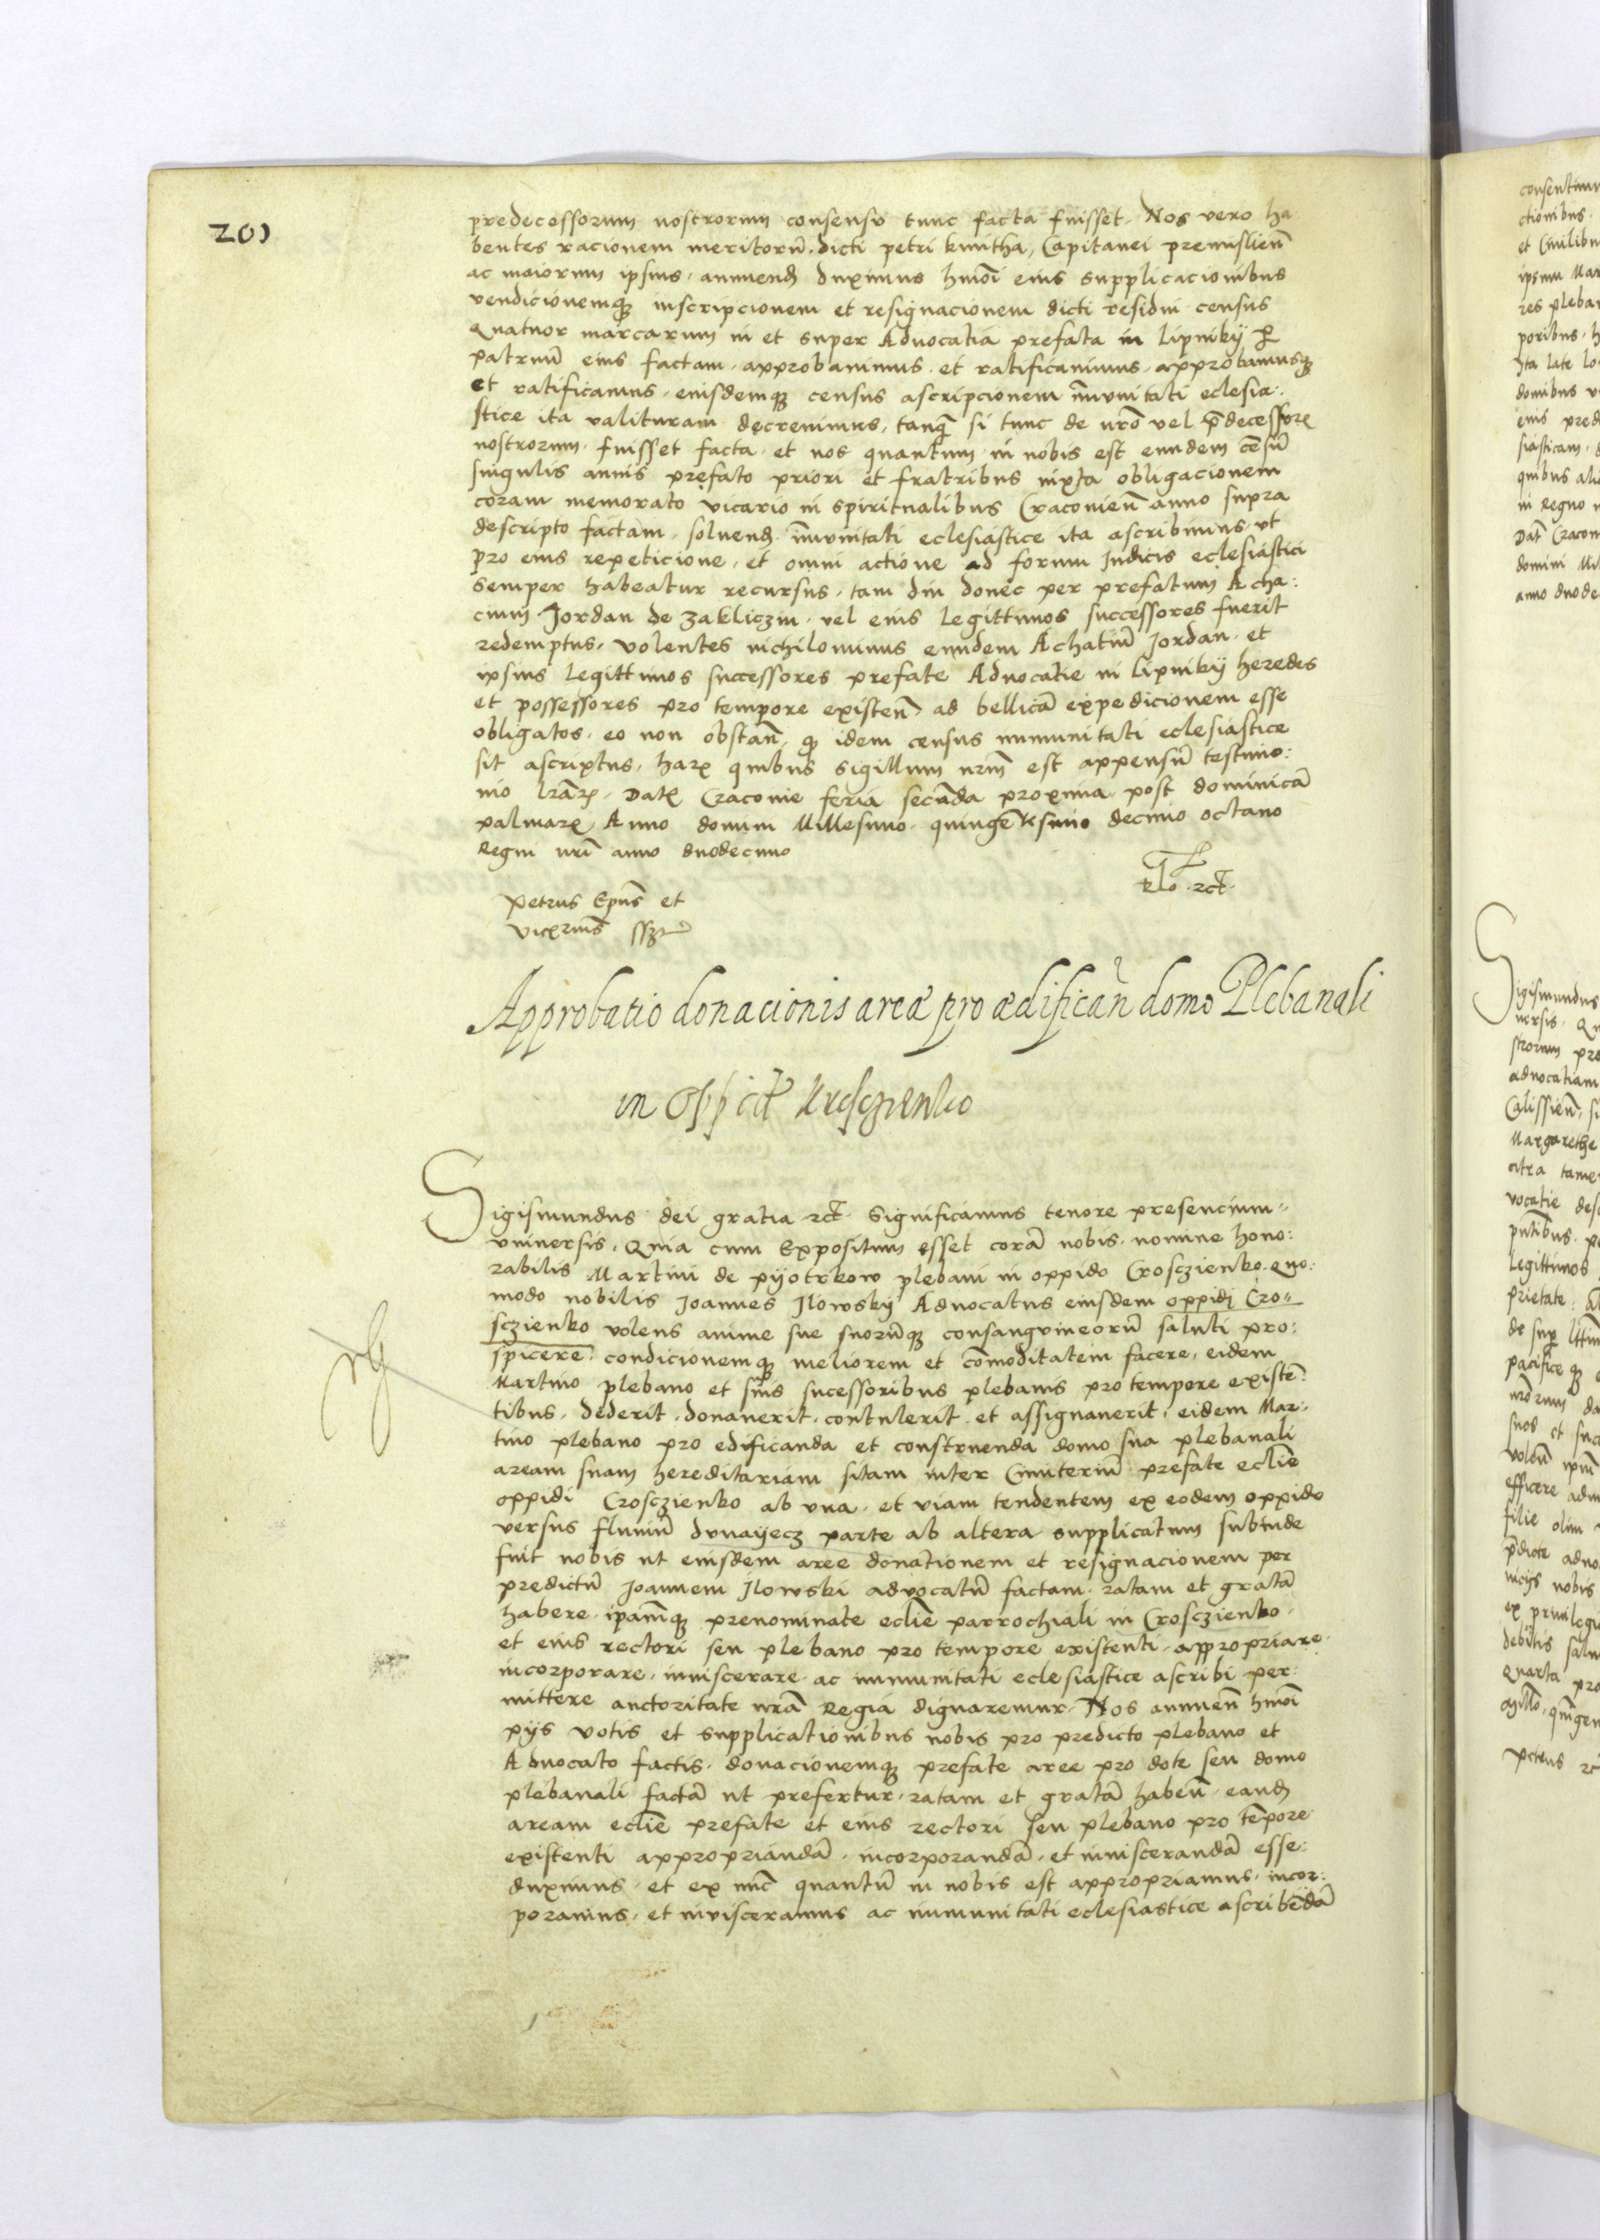 201
predecessorum nostrorum consensu tunc facta fuisset. Nos vero ha
bentes racionem meritorũ. dicti petri kmitha, Capitanei premislień
ac maiorum ipsius. annuend duximus hmõi eius supplicacionibus
vendicionemq inscripcionem et resignacionem dicti residui census
Quatuor marcarum in et super Advocatia prefata in Lipnikÿ p
patruũ eius factam. approbavimus. et ratificavimus. approbamusq
et ratificamus. eiusdemq census ascripcionem īmunitati eclesia:
stice ita valituram decrevimus, tanq si tunc de nrõ vel p̄decessor
nostrorum. fuisset facta. et nos quantum in nobis est eundem cēsũ
singulis annis prefato priori et fratribus iuxta obligacionem
coram memorato vicario in spiritualibus Cracovień anno supra
descripto factam. solvend. īmunitati eclesiastice ita ascribimus. ut
pro eius repeticione. et omni actione ad forum Iudicis eclesiastici
semper habeatur recursus. tam diu donec per prefatum Acha:
cium Jordan de zakliczin. vel eius legittimos successores fuerit
redemptus. volentes nichilominus eundem Achatiũ Jordan. et
ipsius legittimos successores prefate Advocatie in Lipnikÿ heredes
et possessores pro tempore existeń. ad bellicã expedicionem esse
obligatos. eo non obstań. q idem census immunitati eclesiastice
sit ascriptus. har quibus sigillum nrm̃ est appensũ testimo:
nio lrãr. Dat Cracovie feria secũda proxima post dominicã
palmar Anno domini Millesimo. quingẽtesimo decimo octavo
Regni nrĩ anno duodecimo
Petrus Epũs et
vicecñ sszt
Approbatio donacionis areæ pro ædificań domo Plebanali
in oppido Kresczienko
Sigismundus dei gratia ect. Significamus tenore presencium
universis. Quia cum Expositum esset corã nobis. nomine hono:
rabilis Martini de pijotrkow plebani in oppido Crosczienko. quo:
modo nobilis Joannes Ilowskÿ Advocatus eiusdem oppidi Cro
sczienko volens anime sue suorũq consanguineorũ saluti pro:
spicere. condicionemq meliorem et cõmoditatem facere. eidem
Martino plebano et suis sucessoribus plebanis pro tempore existẽ
tibus. dederit. donaverit. contulerit. et assignaverit. eidem Mar:
tino plebano pro edificanda et construenda domo sua plebanali
aream suam hereditariam sitam inter Cimiteriũ prefate eclie
oppidi Crosczienko ab una. et viam tendentem ex eodem oppido
versus fluviũ dunaÿecz parte ab altera supplicatum subinde
fuit nobis ut eiusdem aree donationem et resignacionem per
predictũ Joannem Ilowski advocatũ factam. ratam et gratã
habere. ipamq prenominate eclie parrochiali in Crosczienko.
et eius rectori seu plebano pro tempore existenti. appropriare
incorporare. inviscerare. ac immunitati eclesiastice ascribi per:
mittere auctoritate nrã Regia dignaremur. Nos annueń hmõi
pijs votis et supplicationibus nobis pro predicto plebano et
Advocato factis. donacionemq prefate aree pro dote seu domo
plebanali factã ut prefertur. ratam et gratã habeń. eand
aream eclie prefate et eius rectori seu plebano pro tẽpore
existenti appropriandã. incorporandã. et inviscerandã esse:
duximus. et ex nũc quantũ in nobis est appropriamus. incor:
poramus. et invisceramus ac immunitati eclesiastice ascribẽdã